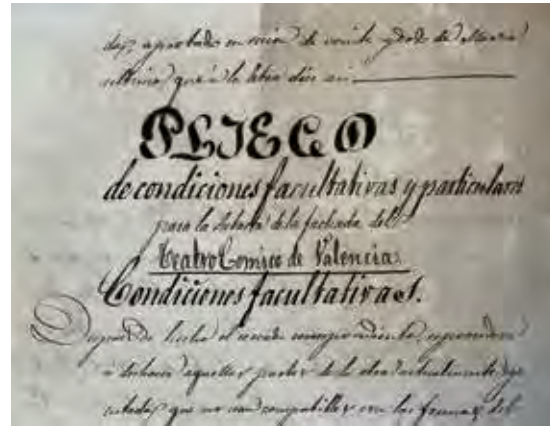 aprobado en de veinte y dos de Marzo
ultimo que á la letra dice asi
PLIEGO
de condiciones facultativas y particulares
para la subasta de la fachada del
Teatro Comico de Valencia.
Condiciones facultativas.
Despues de hecho el
á deshacer aquellas partes de la obra actualmente eje
cutada, que no sean compatibles con las formas del